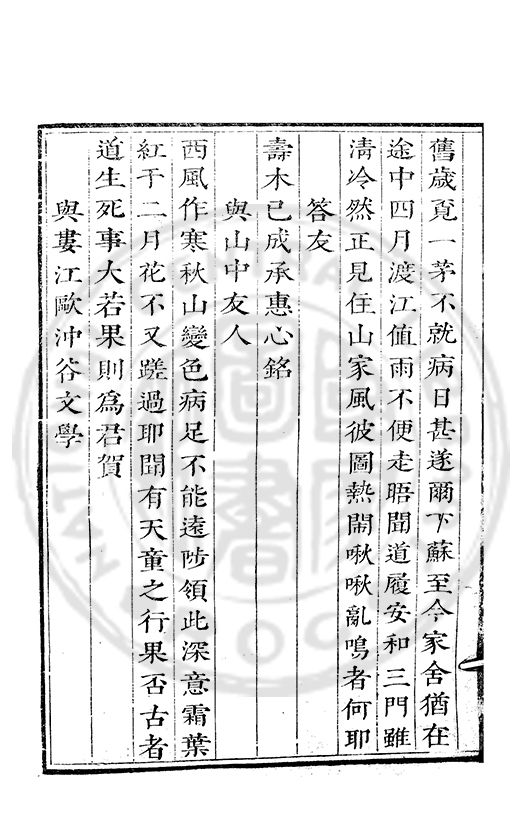 舊歲覓一茅不就病日甚遂爾下蘇至今家舍猶在
途中四月渡江值雨不便走晤聞道履安和三門雖
淸冷然正見住山家風彼圖熱閙啾啾亂鳴者何耶
答友
壽木已成承惠心銘
與山中友人
西風作寒秋山變色病足不能遠陟領此深意霜葉
紅于二月花不又蹉過耶聞有天童之行果否古者
道生死事大若果則爲君賀
與婁江歐沖谷文學